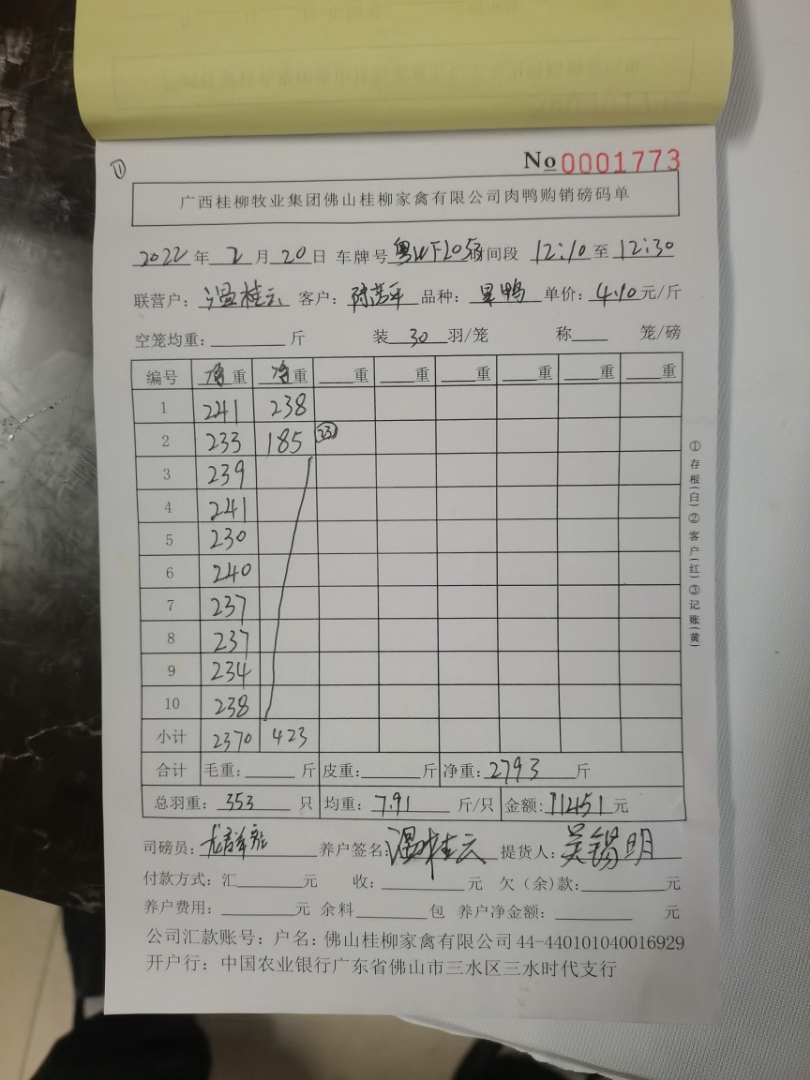 ①
No 0001773
广西桂柳牧业集团佛山桂柳家禽有限公司肉鸭购销磅码单
2022年 2月 20日 车牌号 粤WF205 时间段 12:10 至 12:30
联营户: 温桂云 客户: 品种: 单价: 4.10 元/斤
空笼均重: 斤 装 30 羽/笼 称 笼/磅
编号 净重 净重 重 重 重 重 重 重
1 241 238
2 233 185 (23)
3 239
4 241
5 230
6 240
7 237
8 237
9 234
10 238
小计 2370 423
合计 毛重: 斤 皮重: 斤 净重: 2793 斤
总羽重: 353 只 均重: 7.91 斤/只 金额: 11451 元
司磅员: 养户签名: 温桂云 提货人: 吴锡明
付款方式: 汇 元 收: 元 欠（余）款: 元
养户费用: 元 余料 包 养户净金额: 元
公司汇款账号: 户名: 佛山桂柳家禽有限公司 44-440101040016929
开户行: 中国农业银行广东省佛山市三水区三水时代支行
①存根(白)②客户(红)③记账(黄)